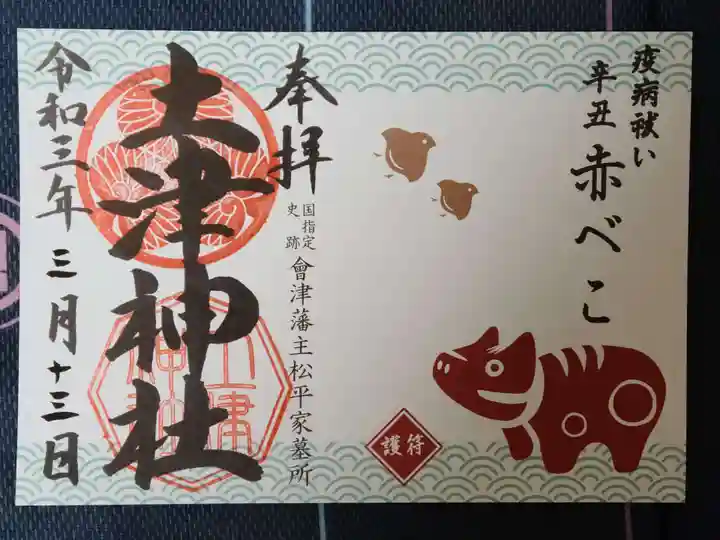 疫病祓い
辛丑 赤べこ
護符
奉拝
国指定
史跡
會津藩主松平家墓所
土津神社
土津神社
令和三年 三月十三日